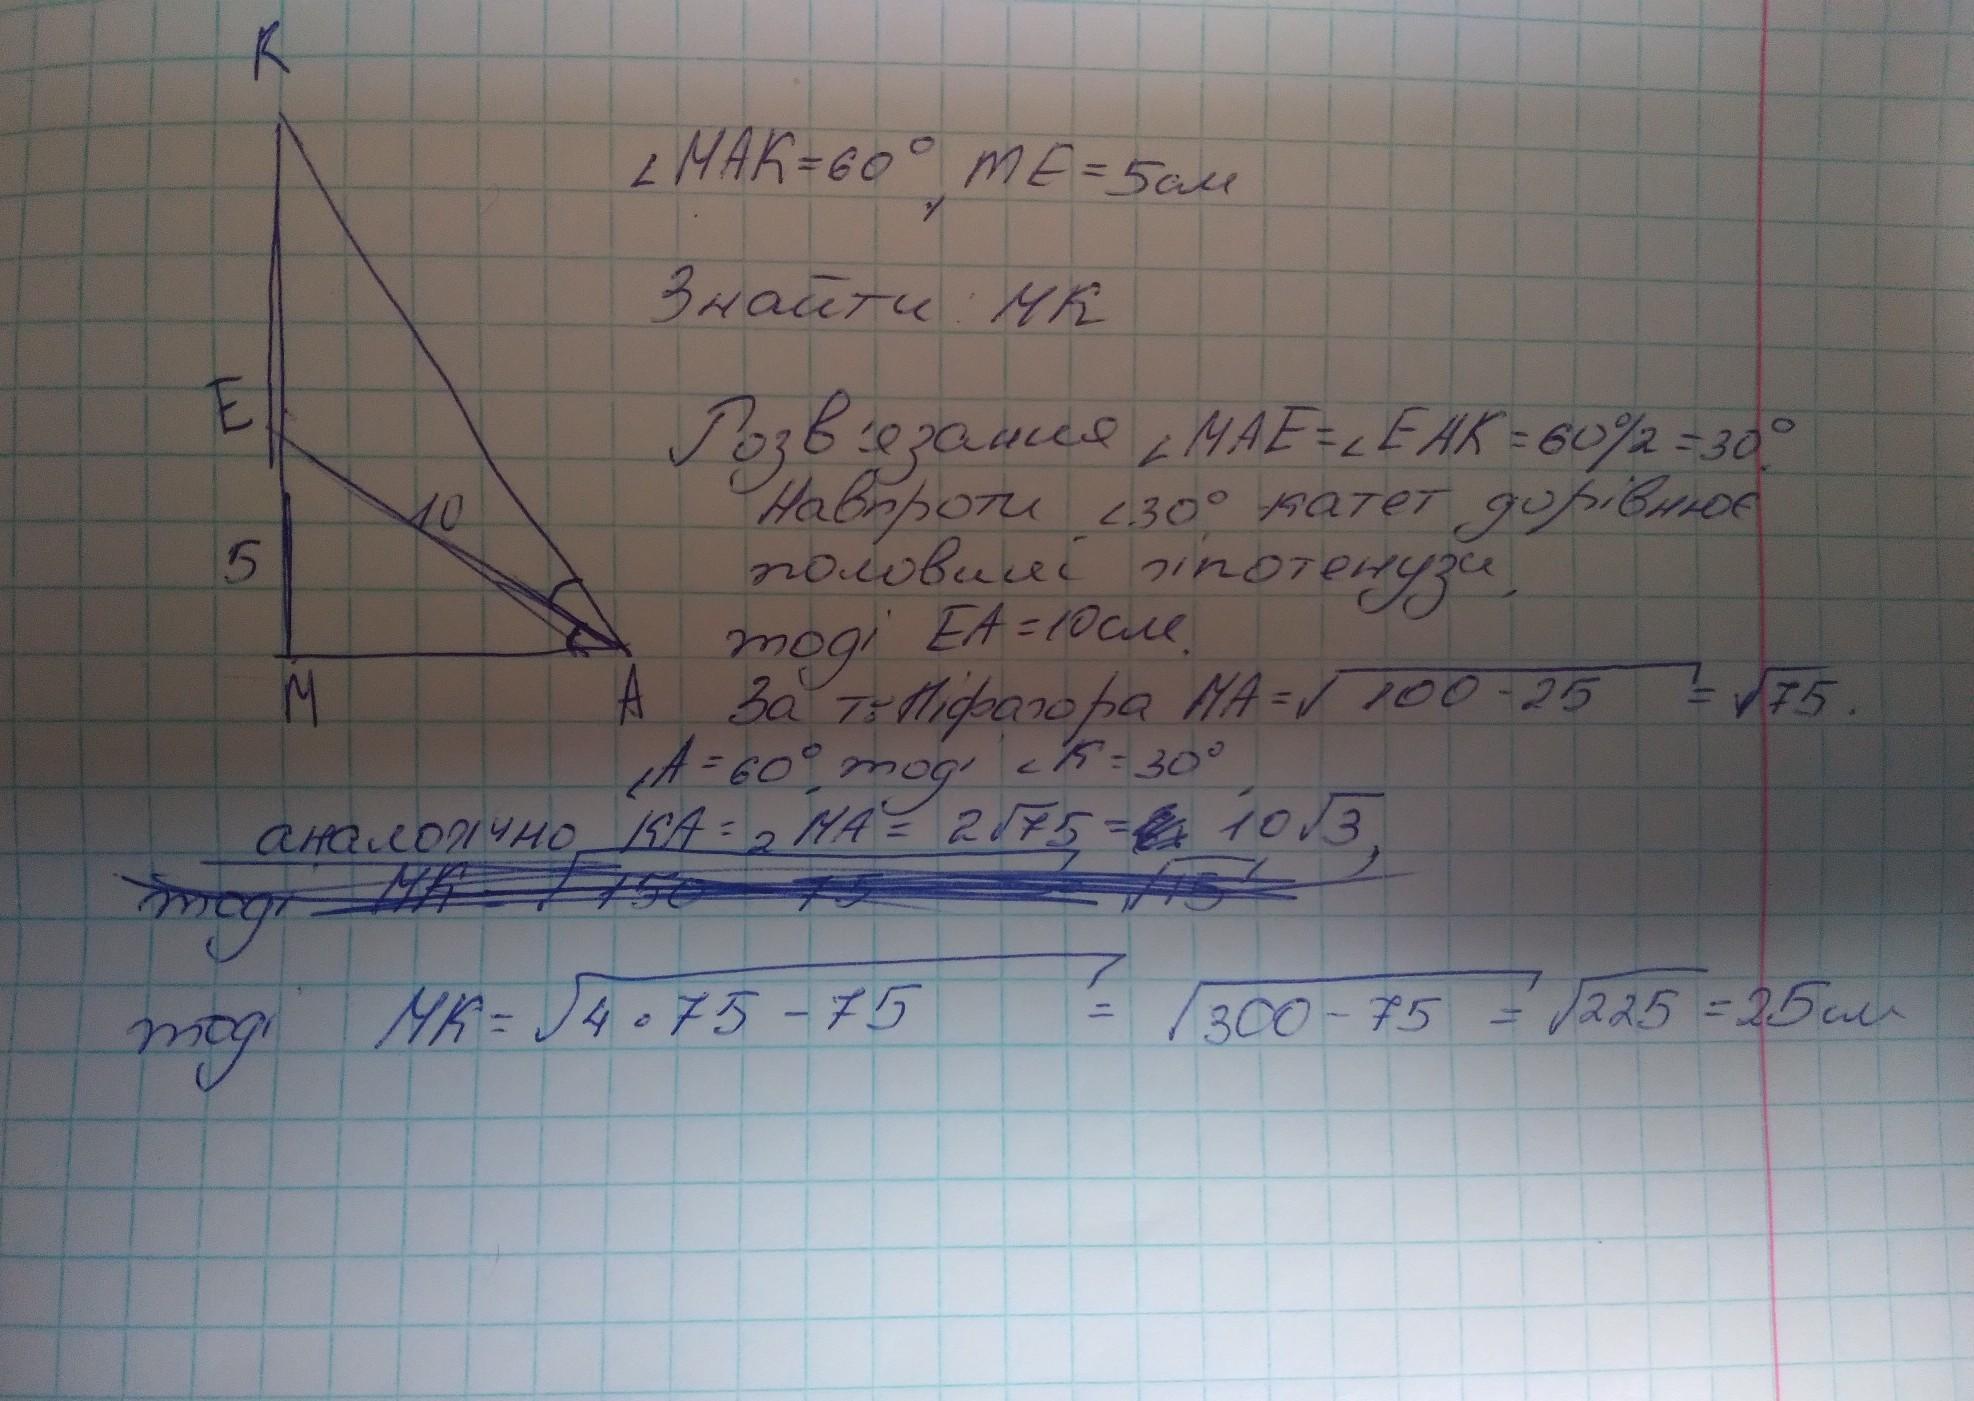 K
∠MAK=60°, ME=5см
Знайти: MK
E
Розв'язання ∠MAE=∠EAK=60°/2=30°.
10
Навпроти ∠30° катет дорівнює
5
половині гіпотенузи,
тоді EA=10см.
M
A
За т. Піфагора MA=√100-25 = √75.
∠A=60°, тоді ∠K=30°,
аналогічно KA=2MA=2√75= 10√3,
тоді MK=√150-75 √15
тоді MK=√4·75-75 = √300-75 = √225=25см